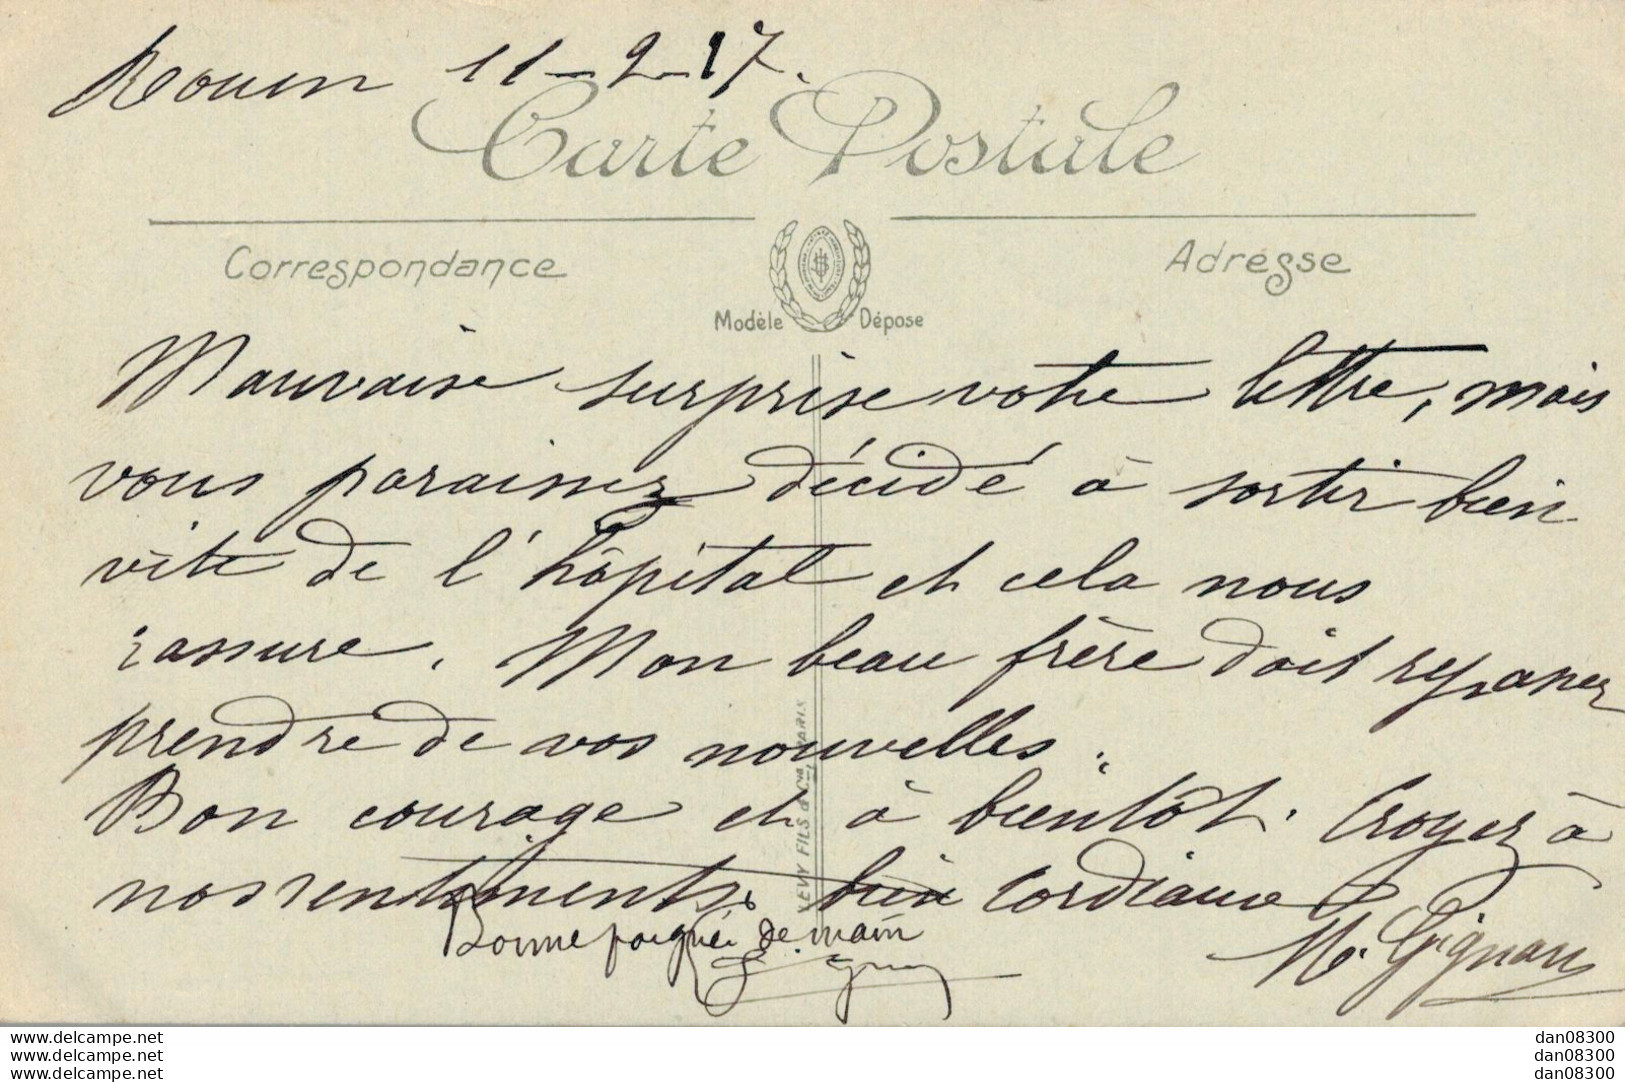 Rouen 11-2-17.
Carte Postale
Correspondance
Adresse
Modèle Déposé
Mauvaise surprise votre lettre, mais
vous paraissez décidé à sortir bien
vite de l'hôpital et cela nous
rassure. Mon beau frère doit
prendre de vos nouvelles.
Bon courage et à bientôt. Croyez à
nos sentiments bien cordiaux
Bonne poignée de main
LEVY FILS & Cie PARIS
www.delcampe.net
www.delcampe.net
www.delcampe.net
dan08300
dan08300
dan08300